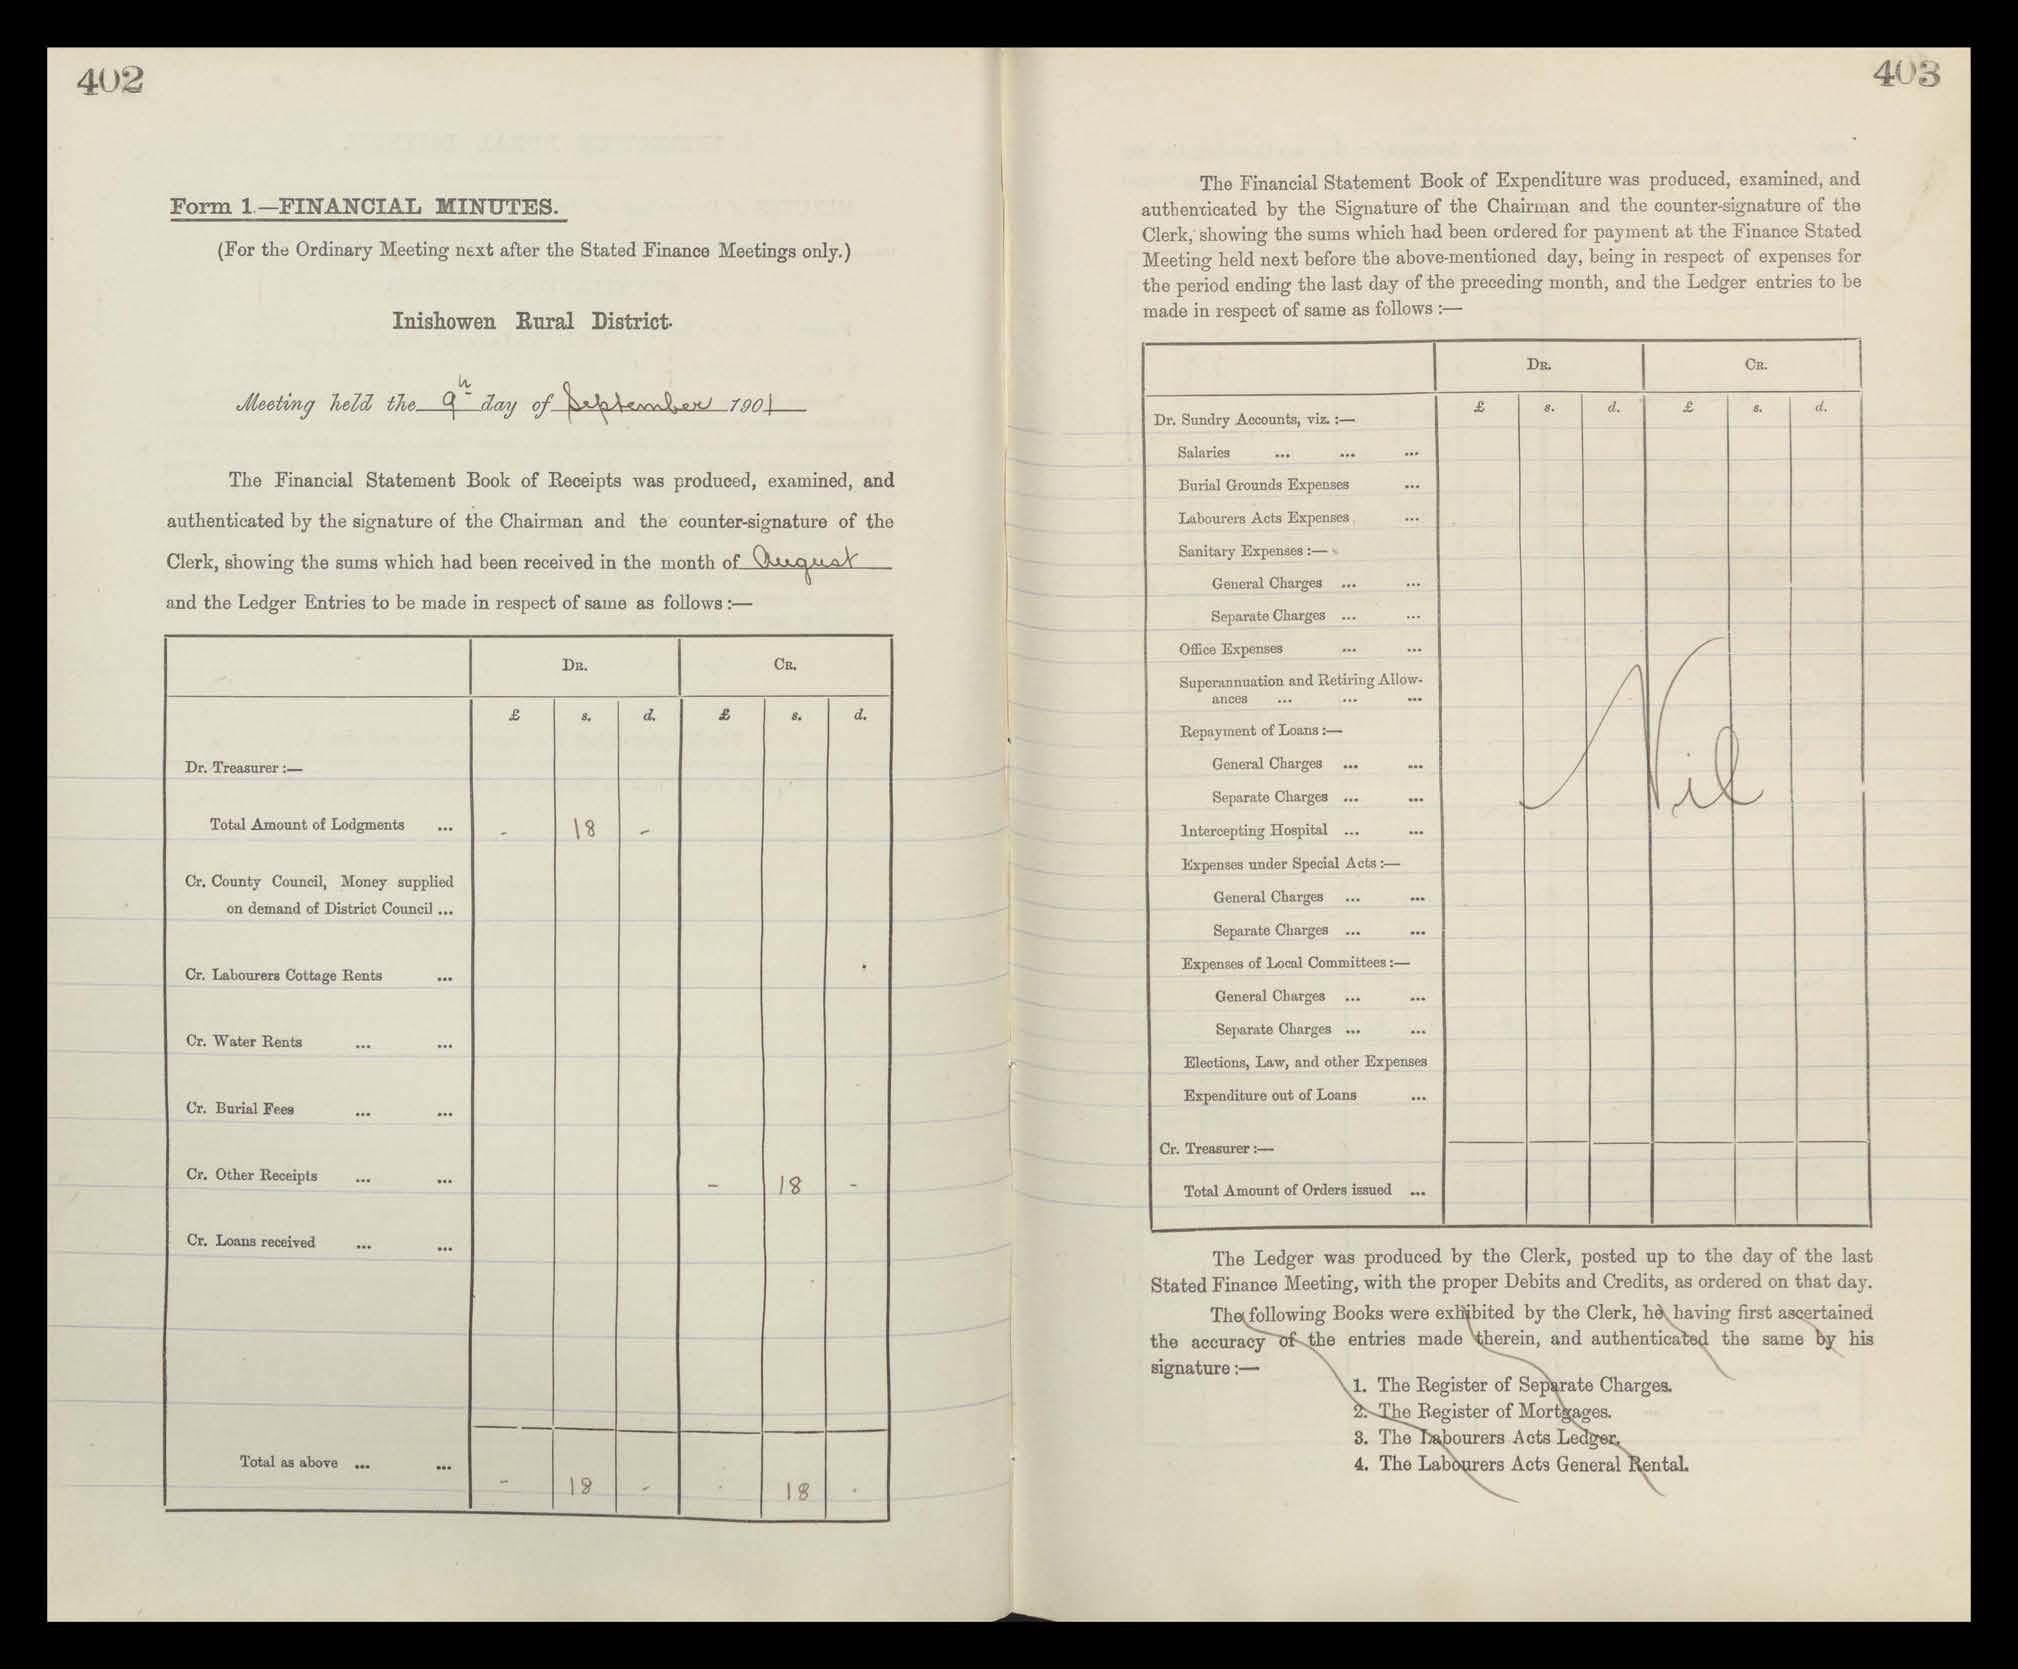 402
Form 1.—FINANCIAL MINUTES.
(For the Ordinary Meeting next after the Stated Finance Meetings only.)
Inishowen Rural District.
Meeting held the 9th day of September 1901
The Financial Statement Book of Receipts was produced, examined, and
authenticated by the signature of the Chairman and the counter-signature of the
Clerk, showing the sums which had been received in the month of August
and the Ledger Entries to be made in respect of same as follows :—
DR. CR.
£ s. d. £ s. d.
Dr. Treasurer :—
Total Amount of Lodgments ... - 18 -
Cr. County Council, Money supplied
on demand of District Council ...
Cr. Labourers Cottage Rents ...
Cr. Water Rents ... ...
Cr. Burial Fees ... ...
Cr. Other Receipts ... ... - 18 -
Cr. Loans received ... ...
Total as above ... ... - 18 - - 18 -
403
The Financial Statement Book of Expenditure was produced, examined, and
authenticated by the Signature of the Chairman and the counter-signature of the
Clerk, showing the sums which had been ordered for payment at the Finance Stated
Meeting held next before the above-mentioned day, being in respect of expenses for
the period ending the last day of the preceding month, and the Ledger entries to be
made in respect of same as follows :—
DR. CR.
£ s. d. £ s. d.
Dr. Sundry Accounts, viz. :—
Salaries ... ... ...
Burial Grounds Expenses ...
Labourers Acts Expenses ...
Sanitary Expenses :—
General Charges ... ...
Separate Charges ... ...
Office Expenses ... ...
Superannuation and Retiring Allow-
ances ... ... ...
Repayment of Loans :—
General Charges ... ...
Nil
Separate Charges ... ...
Intercepting Hospital ... ...
Expenses under Special Acts :—
General Charges ... ...
Separate Charges ... ...
Expenses of Local Committees :—
General Charges ... ...
Separate Charges ... ...
Elections, Law, and other Expenses
Expenditure out of Loans ...
Cr. Treasurer :—
Total Amount of Orders issued ...
The Ledger was produced by the Clerk, posted up to the day of the last
Stated Finance Meeting, with the proper Debits and Credits, as ordered on that day.
The following Books were exhibited by the Clerk, he having first ascertained
the accuracy of the entries made therein, and authenticated the same by his
signature :—
1. The Register of Separate Charges.
2. The Register of Mortgages.
3. The Labourers Acts Ledger.
4. The Labourers Acts General Rental.